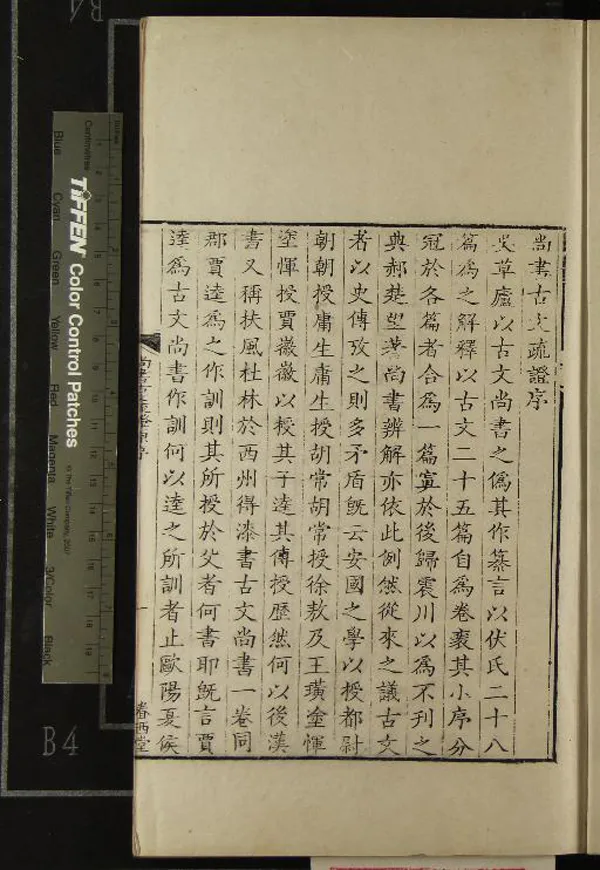 尚書古文疏證序
吳草廬以古文尚書之僞其作纂言以伏氏二十八
篇爲之解釋以古文二十五篇自爲卷褒其小序分
冠於各篇者合爲一篇寘於後歸震川以爲不刊之
典郝楚望著尚書辨解亦依此例然從來之議古文
者以史傳攷之則多矛盾旣云安國之學以授都尉
朝朝授庸生庸生授胡常胡常授徐敖及王璜塗惲
塗惲授賈徽徽以授其子逵其傳授歷然何以後漢
書又稱扶風杜林於西州得漆書古文尚書一卷同
郡賈逵爲之作訓則其所授於父者何書耶旣言賈
逵爲古文尚書作訓何以逵之所訓者止歐陽夏侯
眷西堂
TIFFEN Color Control Patches
© The Tiffen Company, 2007
Centimetres
Inches
Blue
Cyan
Green
Yellow
Red
Magenta
White
3/Color
Black
B4
B4